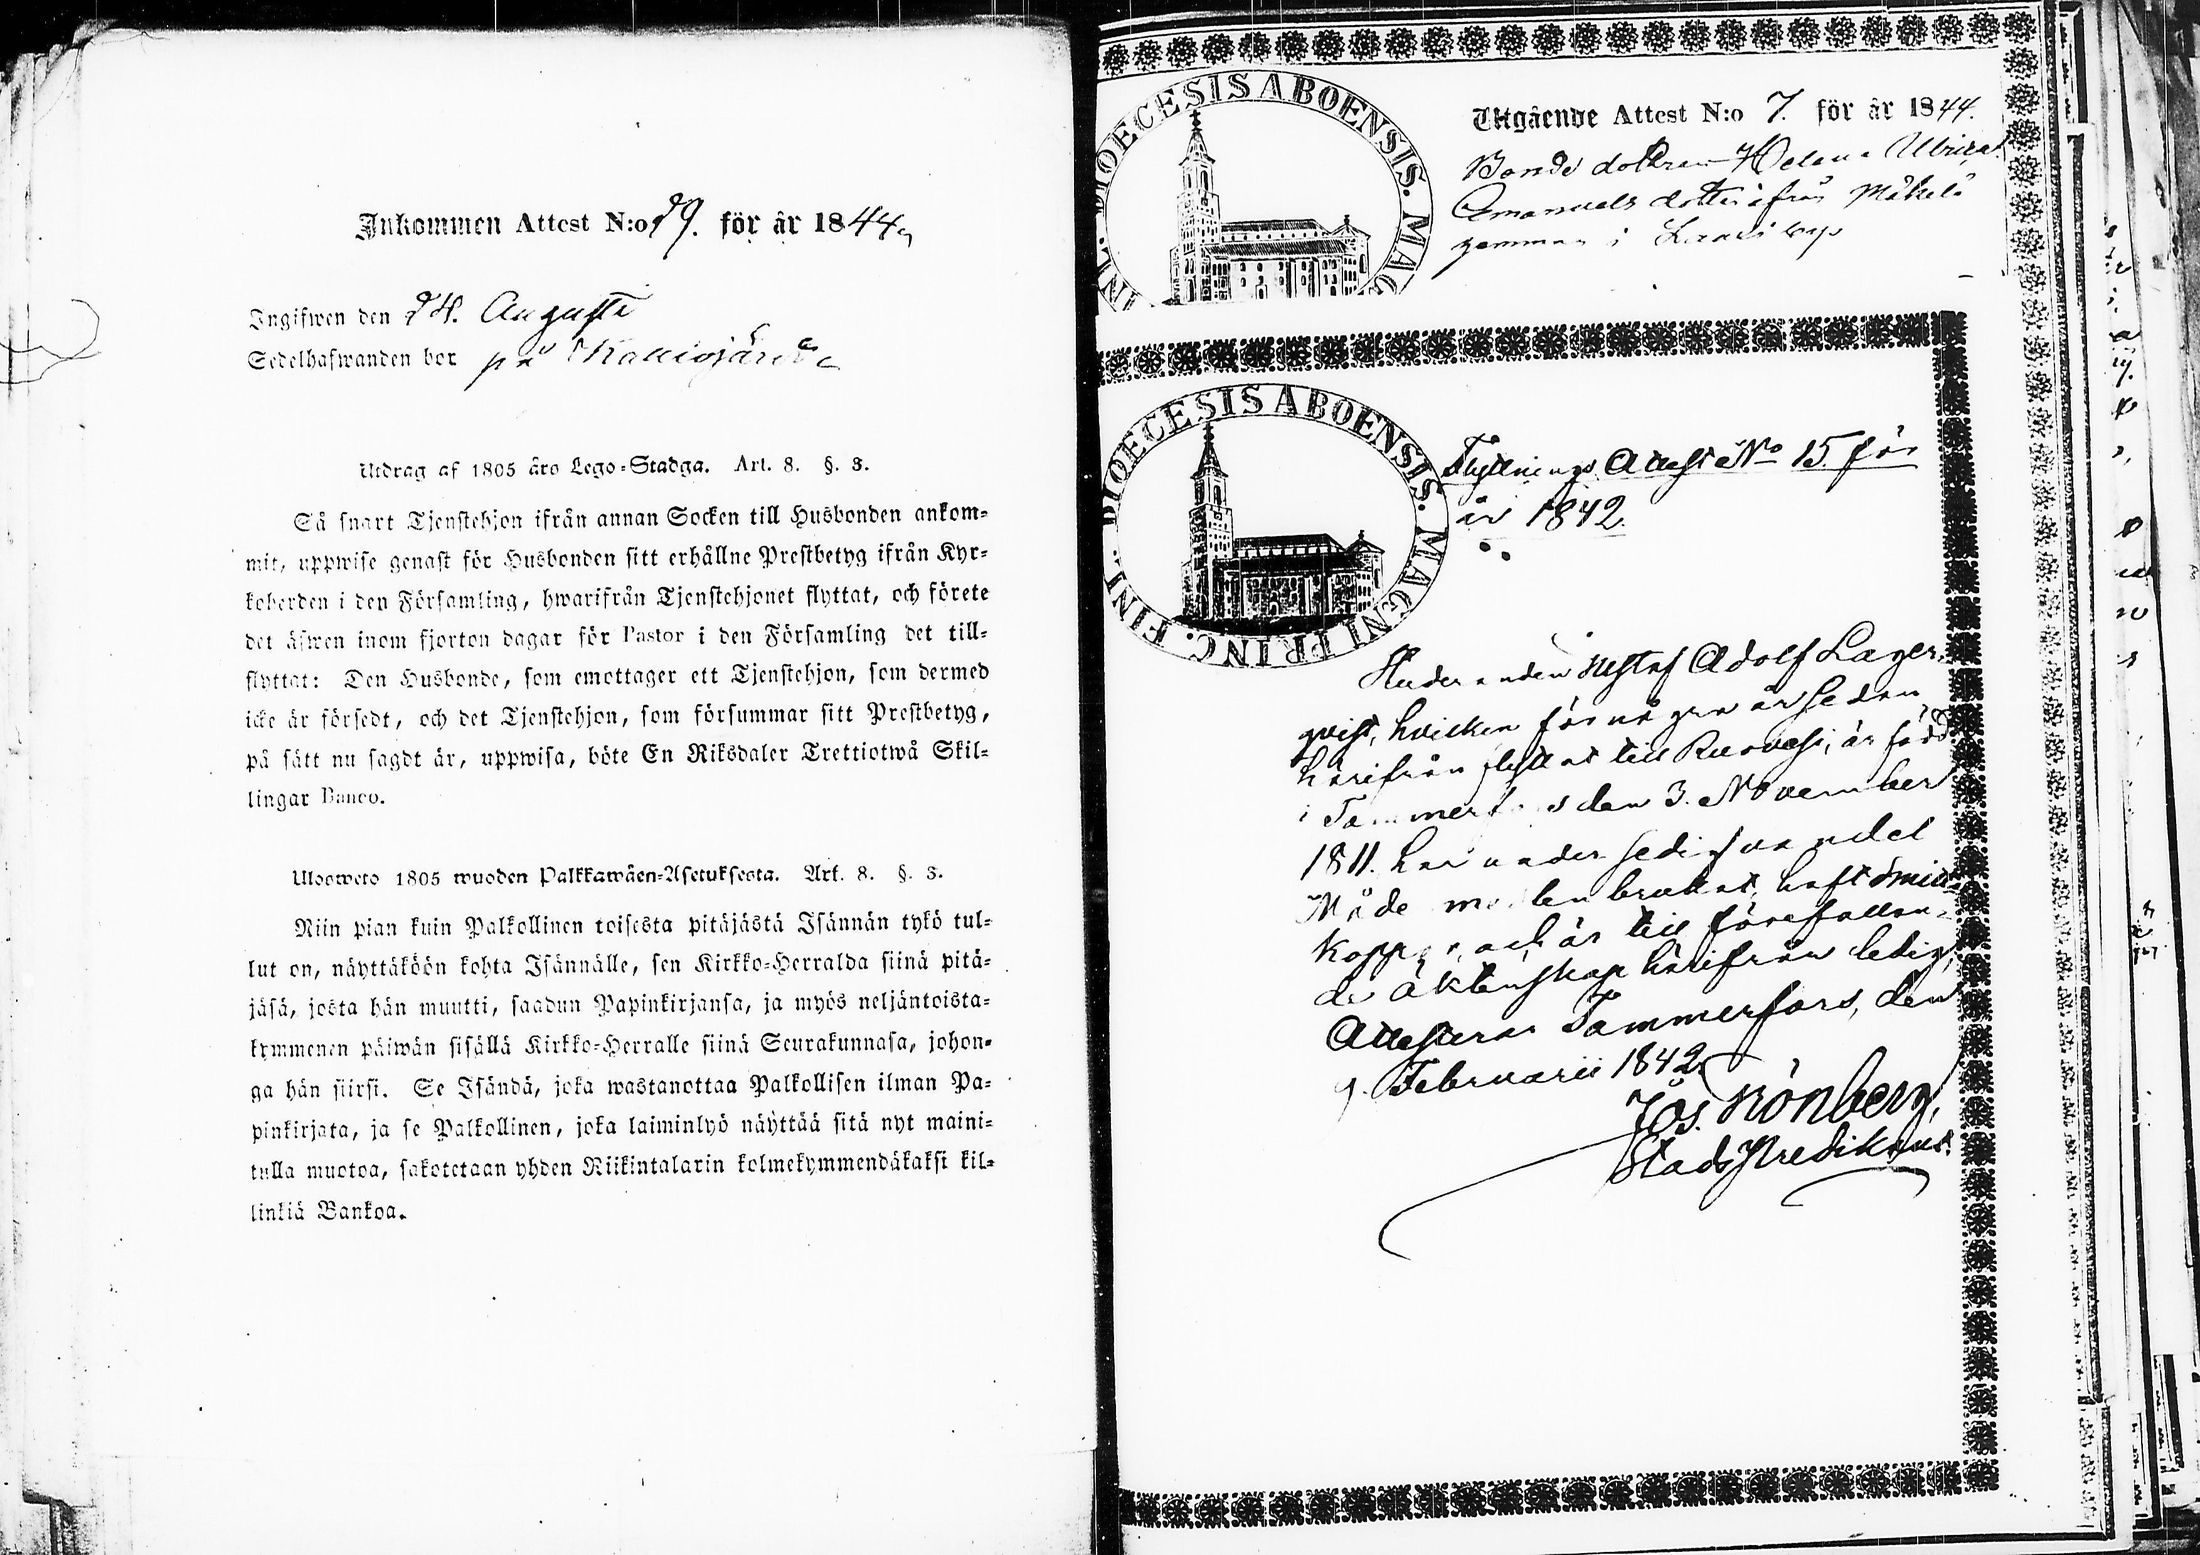 Inkommen Attest N:o 29. för år 1844
Ingifwen den 24. Augusti
Sedelhafwanden bor på
Utdrag af 1805 åro Lego-Stadga. Art. 8. §. 3.
Så snart Tjenstehjon ifrån annan Socken till Husbonden ankom-
mit, uppwise genast för Husbonden sitt erhållne Prestbetyg ifrån Kyr-
koherden i den Församling, hwarifrån Tjenstehjonet flyttat, och förete
det äfwen inom fjorton dagar för Pastor i den Församling det till-
flyttat: Den Husbonde, som emottager ett Tjenstehjon, som dermed
icke är försedt, och det Tjenstehjon, som försummar sitt Prestbetyg,
på sätt nu sagdt är, uppwisa, böte En Riksdaler Trettiotwå Skil-
lingar Banco.
Uloowето 1805 wuoden Palkkawäen-Asetuksesta. Art. 8. §. 3.
Niin pian kuin Palkollinen toisesta pitäjästä Isännän tykö tul-
lut on, näyttäköön kohta Isännälle, sen Kirkko-Herralda siinä pitä-
jäsä, josta hän muutti, saadun Papinkirjansa, ja myös neljäntoista-
kymmenen päiwän sisällä Kirkko-Herralle siinä Seurakunnasa, johon-
ga hän siirsi. Se Isändä, joka wastanottaa Palkollisen ilman Pa-
pinkirjata, ja se Palkollinen, joka laiminlyö näyttää sitä nyt maini-
tulla muotoa, sakotetaan yhden Riikintalarin kolmekymmendäkaksi kil-
linkiä Bankoa.
DIOECESIS ABOENSIS. MAG
Utgående Attest N:o 7. för år 1844.
Bonde dottren Helena Ulrica
Emanuels dotter ifrån Mäkelä
hemman i
DIOECESIS ABOENSIS. MAGNI PRINC. FINL.
Flyttnings Attest No 15 för
år 1842.
Studeranden Gustaf Adolf Lager-
qvist, hvilken för några år sedan
härifrån flyttat till Ruovesi, är född
i Tammerfors den 3. November
1811. har under sedigt vandel
Nåde medlen brukat, haft
koppor, och är till förefallan-
de äktenskap härifrån ledig,
Attesterar Tammerfors, den
9. Februarii 1842.
Jos. Grönberg,
Stads Predikant.